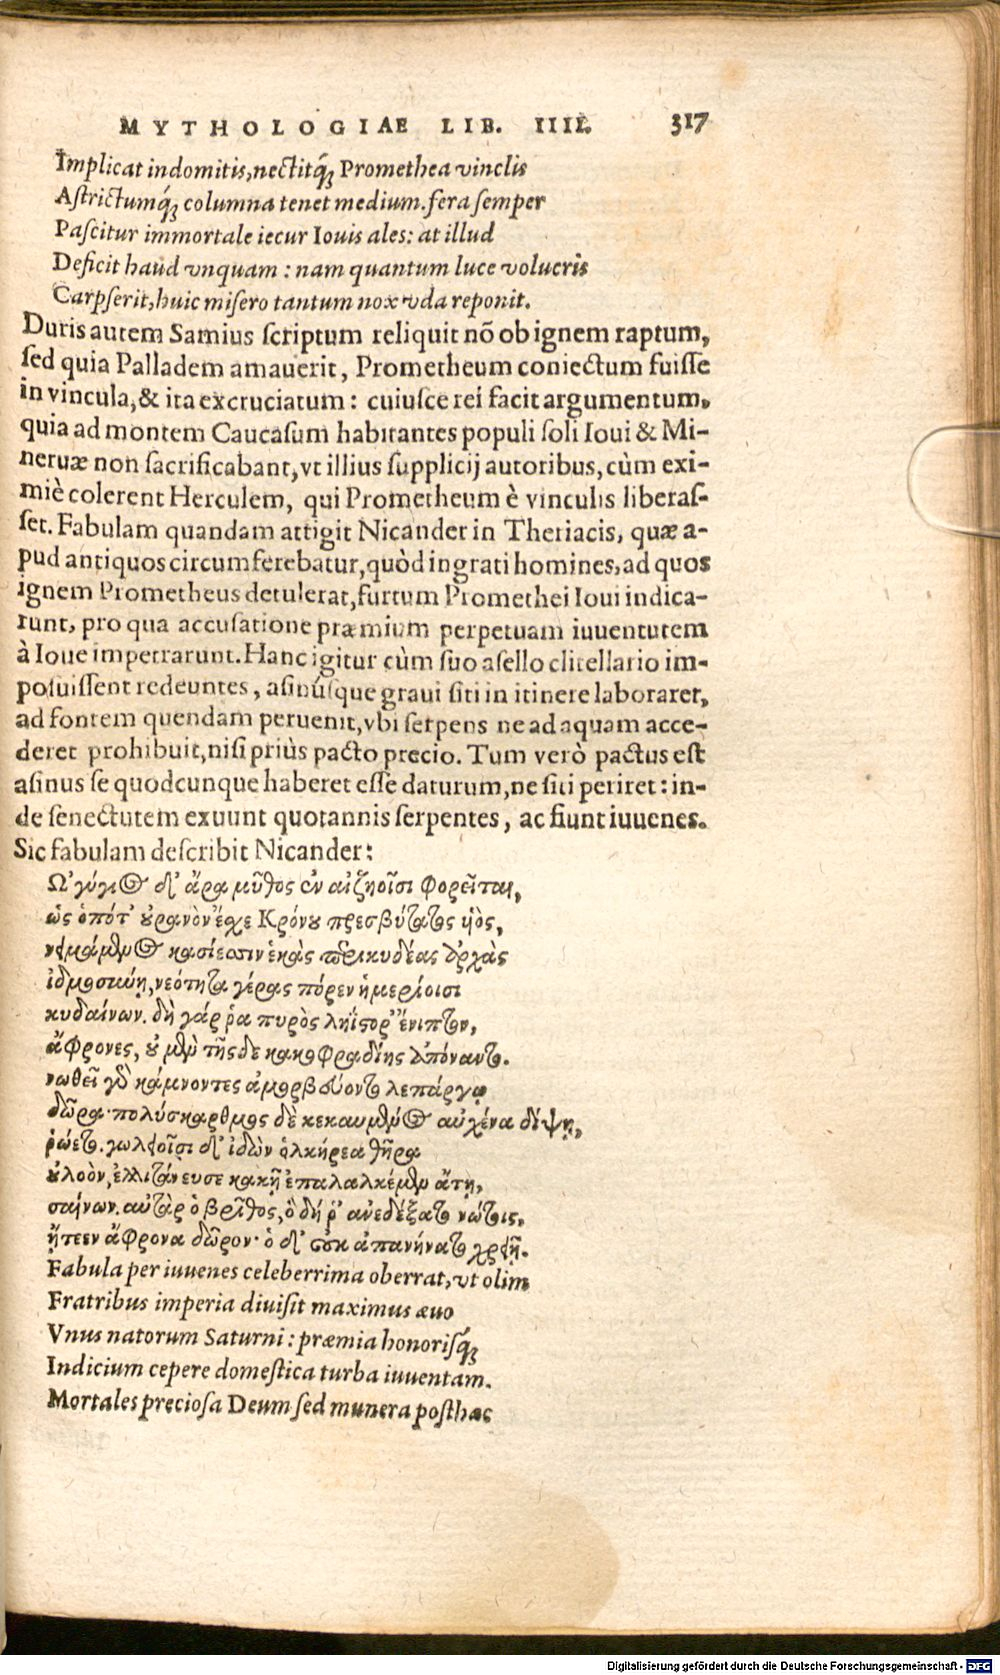 MYTHOLOGIAE LIB. IIII. 317
Implicat indomitis, nectitq́; Promethea vinclis
Aſtrictumq́; columna tenet medium. fera ſemper
Paſcitur immortale iecur Iouis ales: at illud
Deficit haud vnquam: nam quantum luce volucris
Carpſerit, huic miſero tantum nox vda reponit.
Duris autem Samius ſcriptum reliquit nō ob ignem raptum,
ſed quia Palladem amauerit, Prometheum coniectum fuiſſe
in vincula, & ita excruciatum: cuiuſce rei facit argumentum,
quia ad montem Caucaſum habitantes populi ſoli Ioui & Mi-
neruæ non ſacrificabant, vt illius ſupplicij autoribus, cùm exi-
miè colerent Herculem, qui Prometheum è vinculis liberaſ-
ſet. Fabulam quandam attigit Nicander in Theriacis, quæ a-
pud antiquos circumferebatur, quòd ingrati homines, ad quos
ignem Prometheus detulerat, furtum Promethei Ioui indica-
runt, pro qua accuſatione præmium perpetuam iuuentutem
à Ioue impetrarunt. Hanc igitur cùm ſuo aſello clitellario im-
poſuiſſent redeuntes, aſinúſque graui ſiti in itinere laboraret,
ad fontem quendam peruenit, vbi ſerpens ne ad aquam acce-
deret prohibuit, niſi priùs pacto precio. Tum verò pactus eſt
aſinus ſe quodcunque haberet eſſe daturum, ne ſiti periret: in-
de ſenectutem exuunt quotannis ſerpentes, ac fiunt iuuenes.
Sic fabulam deſcribit Nicander:
Ὠγύγιος δ' ἄρα μῦθος ἐν αἰζηοῖσι φορεῖται,
ὡς ὁπότ' οὐρανὸν ἔσχε Κρόνου πρεσβύτατος υἱὸς,
νειμάμενος κασίεσσιν ἑκὰς περικυδέας ἀρχὰς
ἰδμοσύνῃ, νεότητα γέρας πόρεν ἡμερίοισι
κυδαίνων. δὴ γάρ ῥα πυρὸς ληΐστορ' ἔνιπτον,
ἄφρονες, οὐ μὲν τῆς δε κακοφραδίης ἀπόναντο.
νωθεῖ γὰρ κάμνοντες ἀμορβεύοντο λεπάργῳ
δῶρα· πολύσκαρθμος δὲ κεκαυμένος αὐχένα δίψῃ,
ῥώετο. γωλειοῖσι δ' ἰδὼν ὁλκήρεα θῆρα
οὐλοὸν, ἐλλιτάνευσε κακῇ ἐπαλαλκέμεν ἄτῃ,
σαίνων. αὐτὰρ ὁ βρῖθος, ὃ δή ῥ' ἀνεδέξατο νώτοις,
ᾔτεεν ἄφρονα δῶρον· ὁ δ' οὐκ ἀπανήνατο χρειῇ.
Fabula per iuuenes celeberrima oberrat, vt olim
Fratribus imperia diuiſit maximus æuo
Vnus natorum Saturni: præmia honoriſq́;
Indicium cepere domeſtica turba iuuentam.
Mortales precioſa Deum ſed munera poſthac
Digitalisierung gefördert durch die Deutsche Forschungsgemeinschaft - DFG